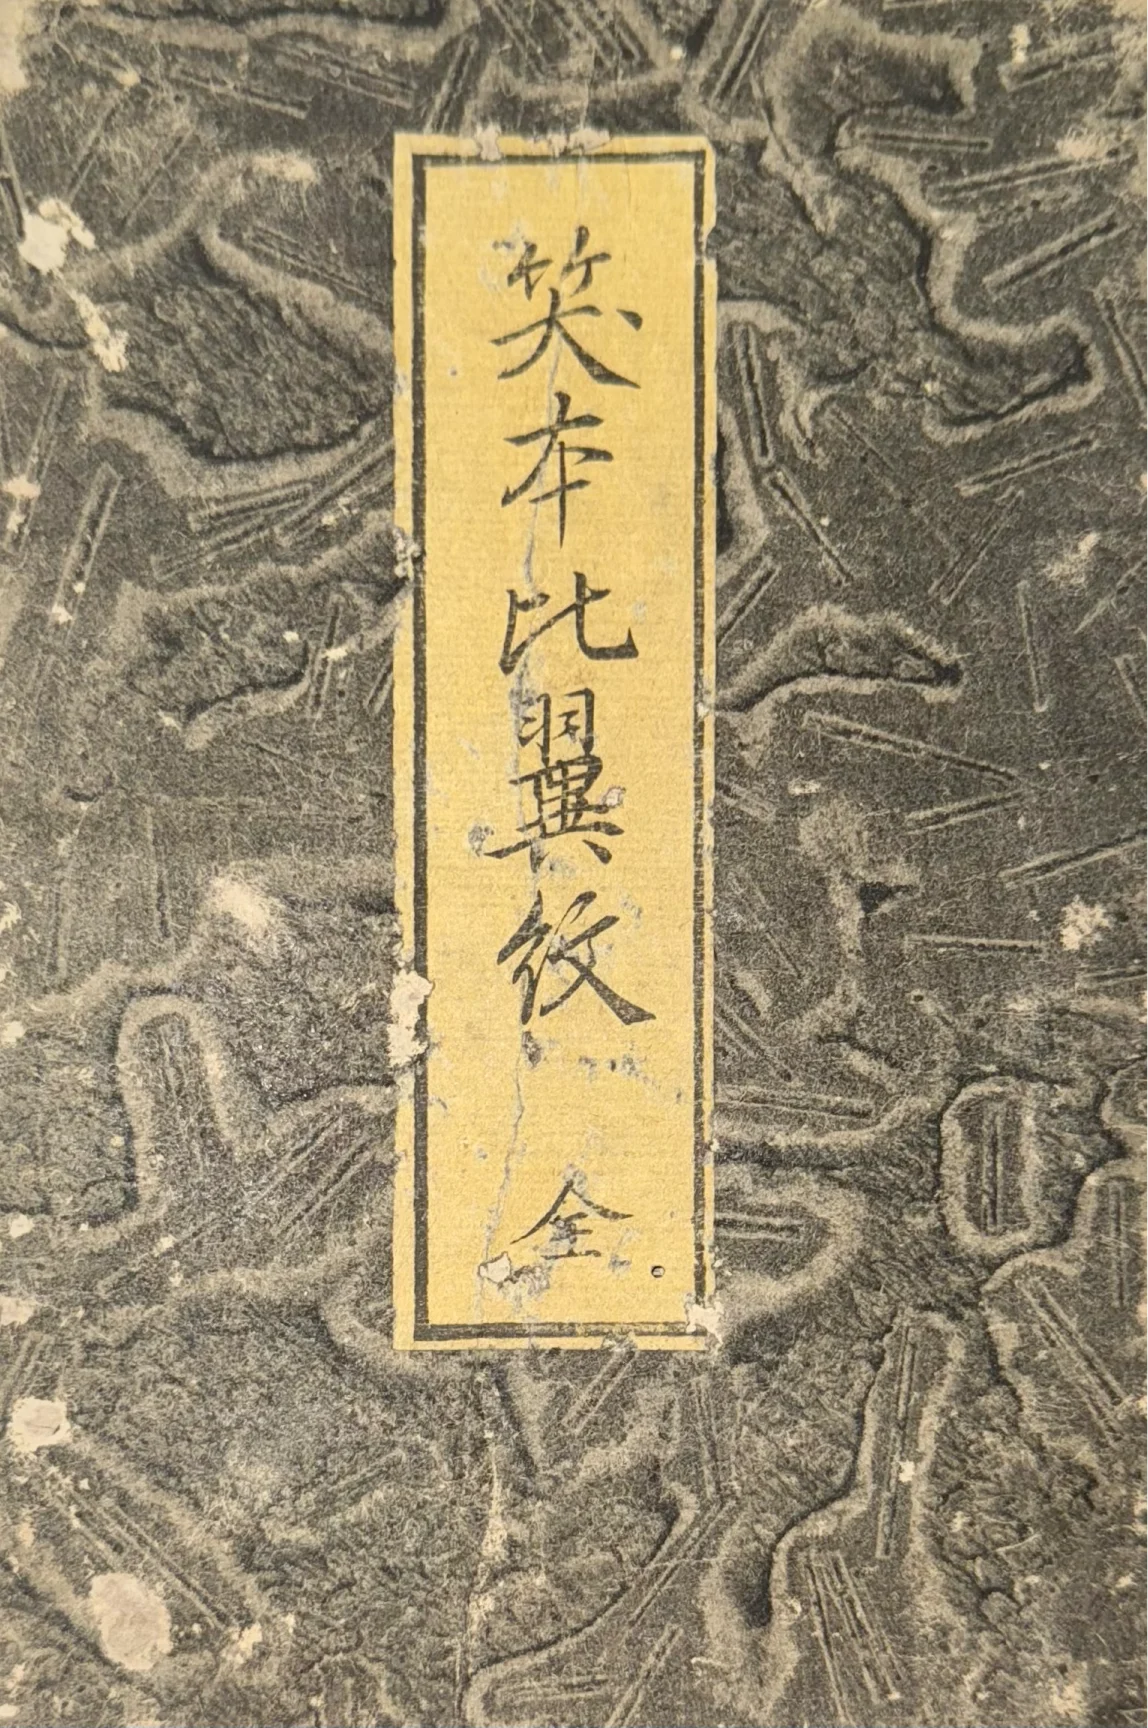 笑本比翼紋 全